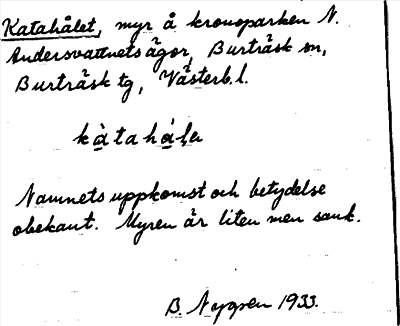 Katahålet, myr å kronoparken N.
Andersvattnets ägor, Burträsk sn,
Burträsk tg, Västerb.l.
kàtahá̀ḷa
Namnets uppkomst och betydelse
obekant. Myren är liten men sank.
B. Noppen 1933.